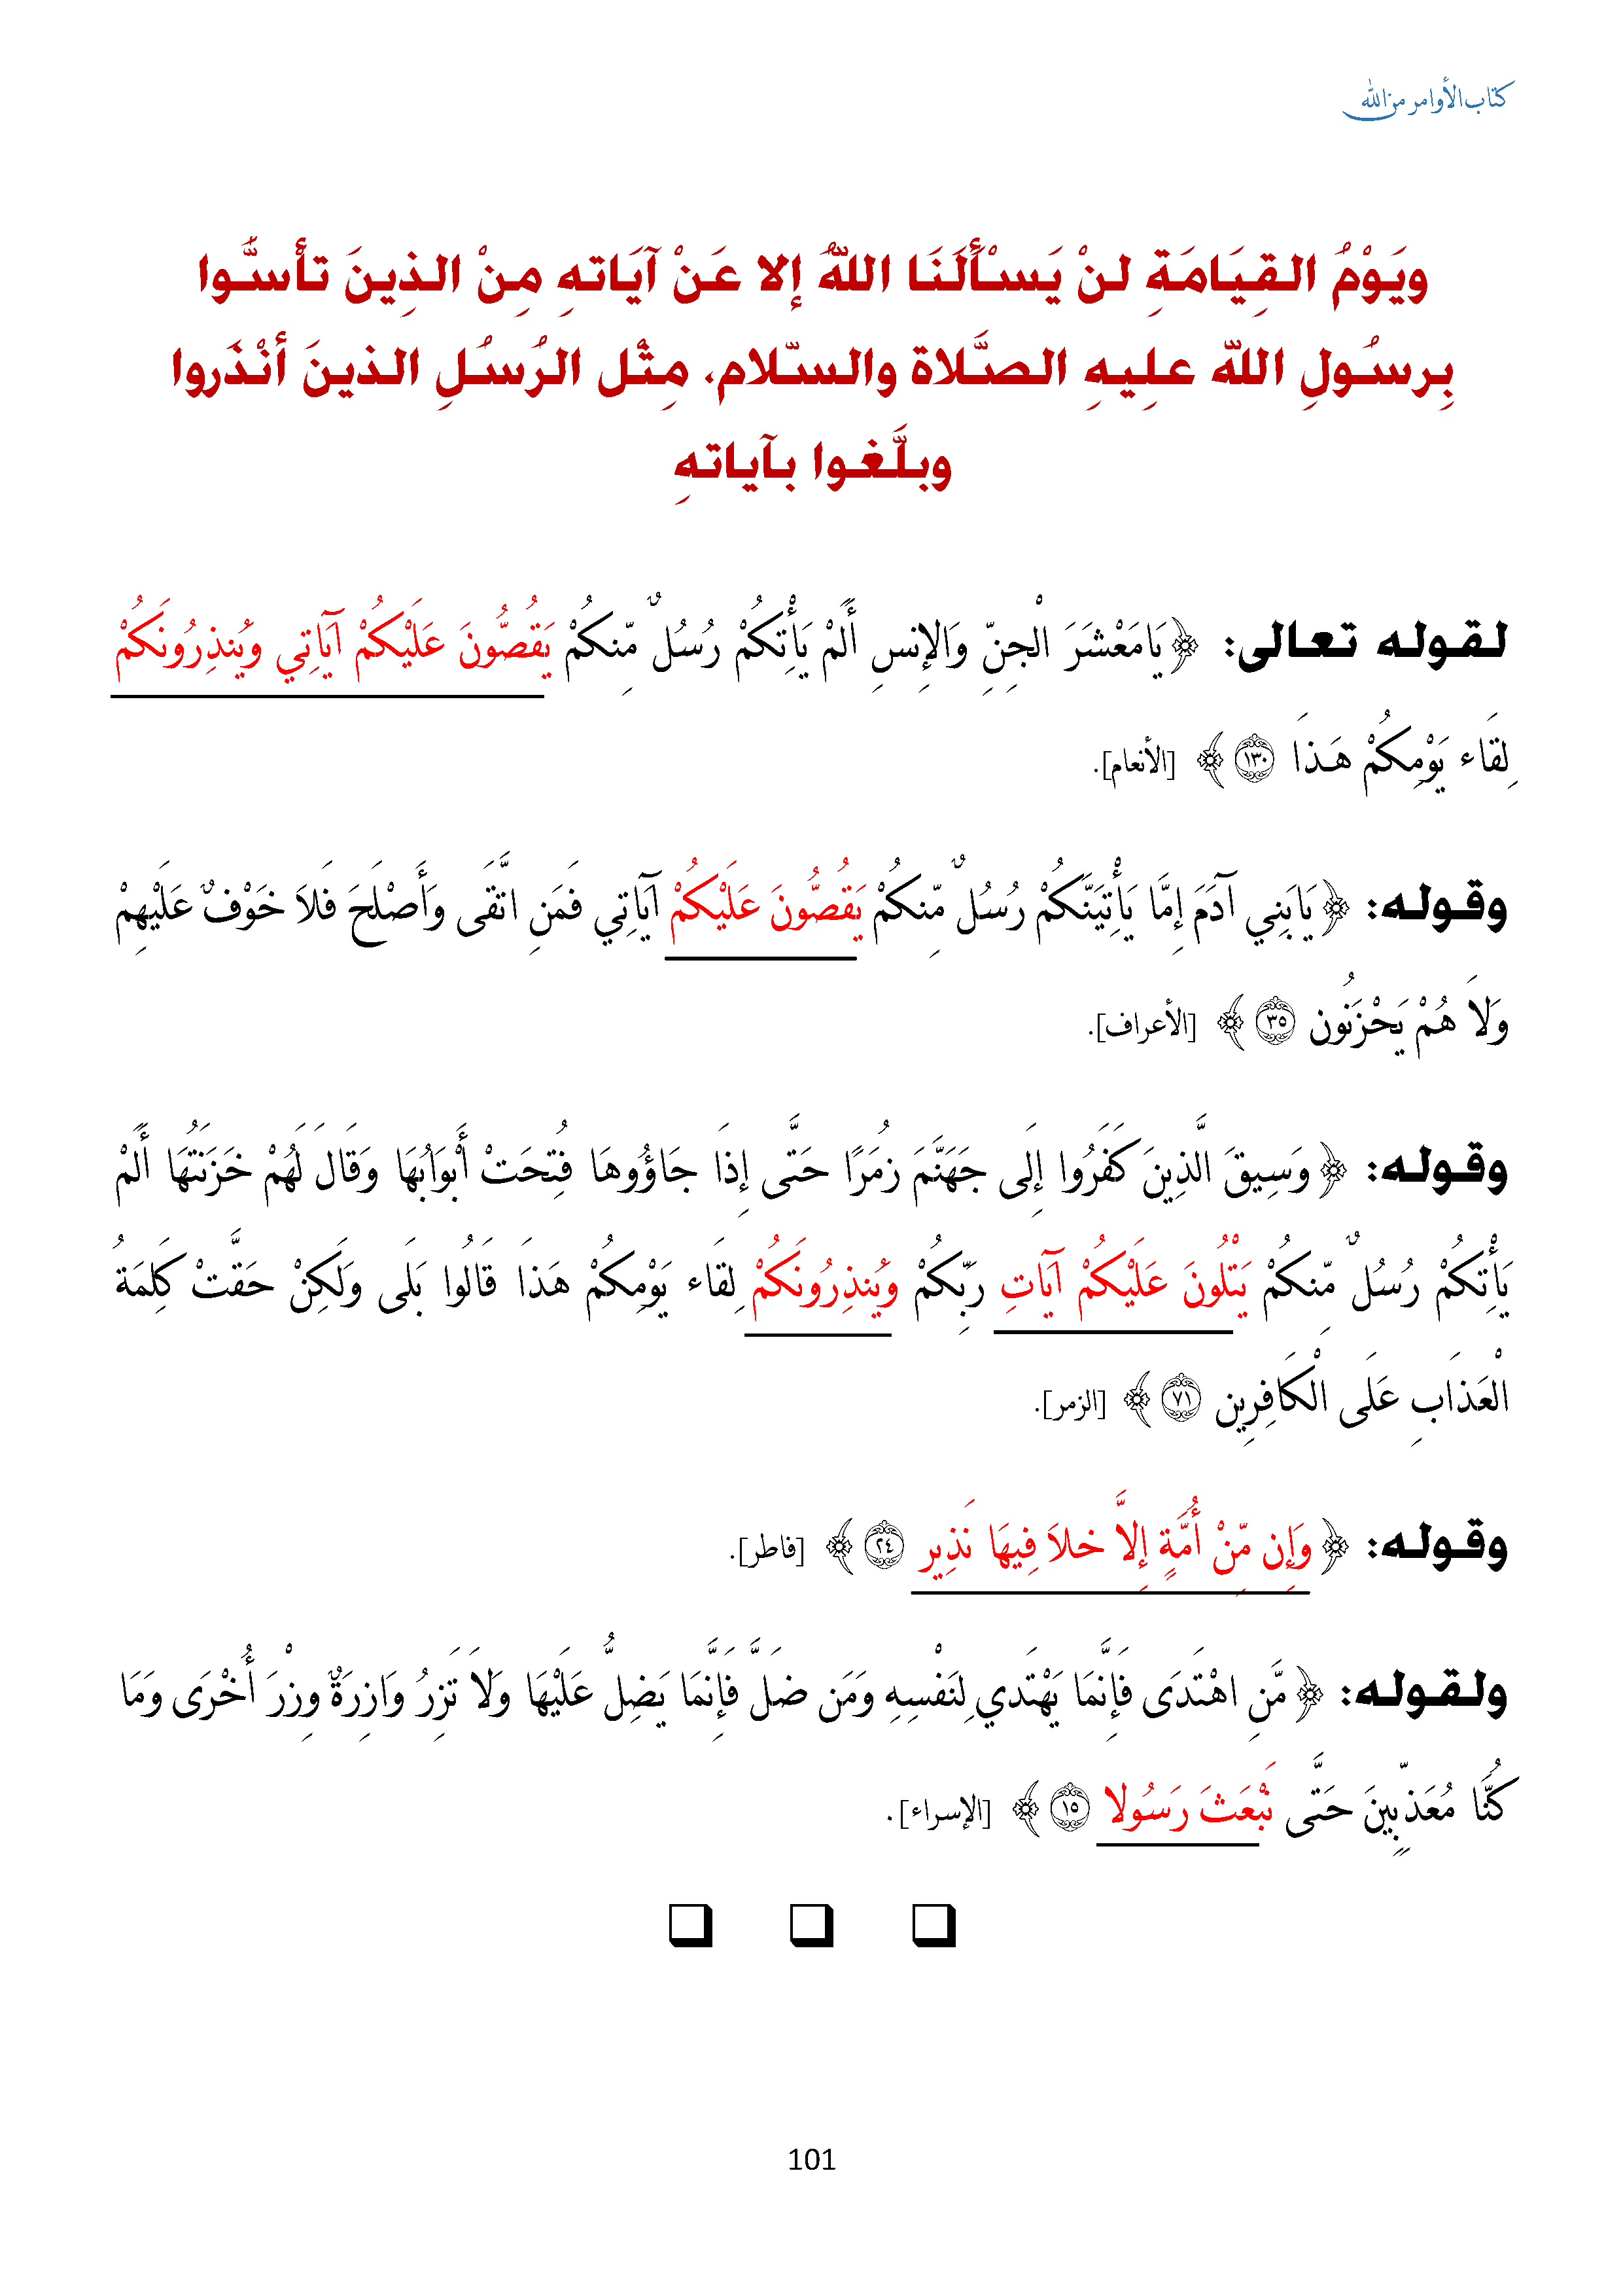 كتاب الأوامر من الله
ويَوْمُ القِيَامَةِ لنْ يَسْأَلَنَا اللهُ إلا عَنْ آيَاتهِ مِنْ الذِينَ تأسُّوا
بِرسُولِ الله علِيهِ الصَّلاة والسّلام، مِثْل الرُسلِ الذينَ أنْذَروا
وبلَّغوا بآياتهِ
لقوله تعالى: ﴿يَامَعْشَرَ الْجِنِّ وَالإِنسِ أَلَمْ يَأْتِكُمْ رُسُلٌ مِّنكُمْ يَقُصُّونَ عَلَيْكُمْ آيَاتِي وَيُنذِرُونَكُمْ
لِقَاء يَوْمِكُمْ هَـذَا ١٣٠﴾ [الأنعام].
وقوله: ﴿يَابَنِي آدَمَ إِمَّا يَأْتِيَنَّكُمْ رُسُلٌ مِّنكُمْ يَقُصُّونَ عَلَيْكُمْ آيَاتِي فَمَنِ اتَّقَى وَأَصْلَحَ فَلاَ خَوْفٌ عَلَيْهِمْ
وَلاَ هُمْ يَحْزَنُون ٣٥﴾ [الأعراف].
وقوله: ﴿وَسِيقَ الَّذِينَ كَفَرُوا إِلَى جَهَنَّمَ زُمَرًا حَتَّى إِذَا جَاؤُوهَا فُتِحَتْ أَبْوَابُهَا وَقَالَ لَهُمْ خَزَنَتُهَا أَلَمْ
يَأْتِكُمْ رُسُلٌ مِّنكُمْ يَتْلُونَ عَلَيْكُمْ آيَاتِ رَبِّكُمْ وَيُنذِرُونَكُمْ لِقَاء يَوْمِكُمْ هَذَا قَالُوا بَلَى وَلَكِنْ حَقَّتْ كَلِمَةُ
الْعَذَابِ عَلَى الْكَافِرِين ٧١﴾ [الزمر].
وقوله: ﴿وَإِن مِّنْ أُمَّةٍ إِلاَّ خلاَ فِيهَا نَذِير ٢٤﴾ [فاطر].
ولقوله: ﴿مَّنِ اهْتَدَى فَإِنَّمَا يَهْتَدي لِنَفْسِهِ وَمَن ضَلَّ فَإِنَّمَا يَضِلُّ عَلَيْهَا وَلاَ تَزِرُ وَازِرَةٌ وِزْرَ أُخْرَى وَمَا
كُنَّا مُعَذِّبِينَ حَتَّى نَبْعَثَ رَسُولا ١٥﴾ [الإسراء].
101